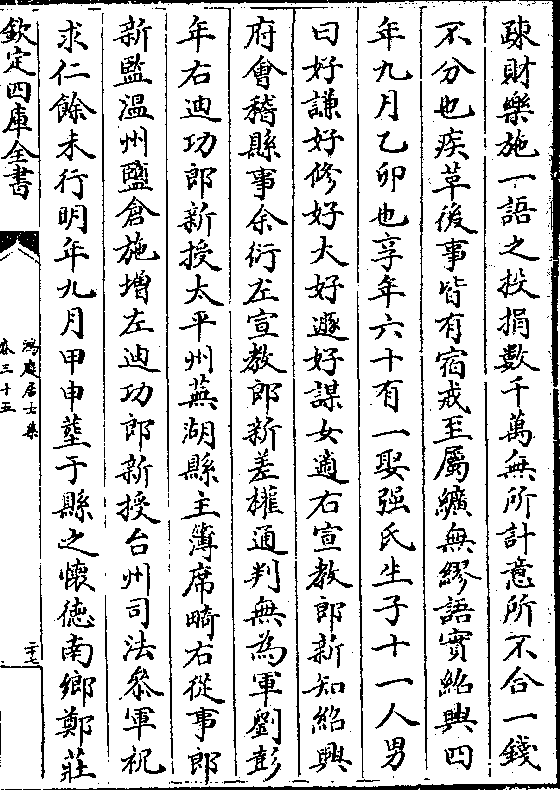 疎財樂施一語之投捐數千萬無所計意所不合一錢
不分也疾革後事皆有宿戒至屬纊無繆語實紹興四
年九月乙卯也享年六十有一娶强氏生子十一人男
曰好謙好修好大好遯好謀女適右宣教郎新知紹興
府會稽縣事余衍左宣教郎新差權通判無為軍劉彭
年右迪功郎新授太平州蕪湖縣主簿席畸右從事郎
新監温州鹽倉施增左迪功郎新授台州司法叅軍祝
求仁餘未行明年九月甲申塟于縣之懷德南鄉鄭莊
欽定四庫全書
鴻慶居士集
卷三十五
二十七